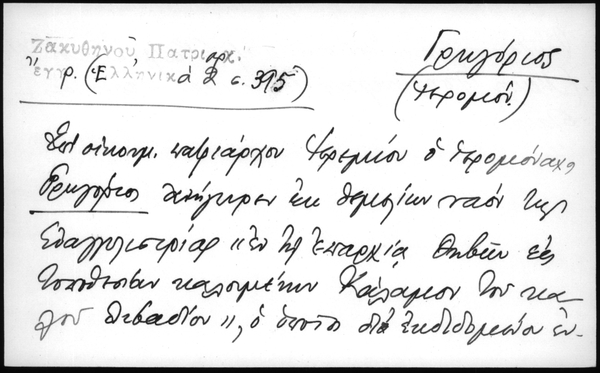 Ζακυθηνοῦ Πατριαρχ.
ἔγγρ. (Ἑλληνικά 2 σ. 395)
Γρηγόριος
(ἱερομόν.)
Ἐπί οἰκουμ. πατριάρχου Ἱερεμίου ὁ ἱερομόναχος
Γρηγόριος ἀνήγειρεν ἐκ θεμελίων ναόν τῆς
Εὐαγγελιστρίας "ἐν τῇ ἐπαρχίᾳ Θηβῶν εἰς
τοποθεσίαν καλουμένην Κάλαμον τοῦ κα-
λοῦ Λιβαδίου", ὁ ὁποῖος διά ἐκδιδομένου ἐν-